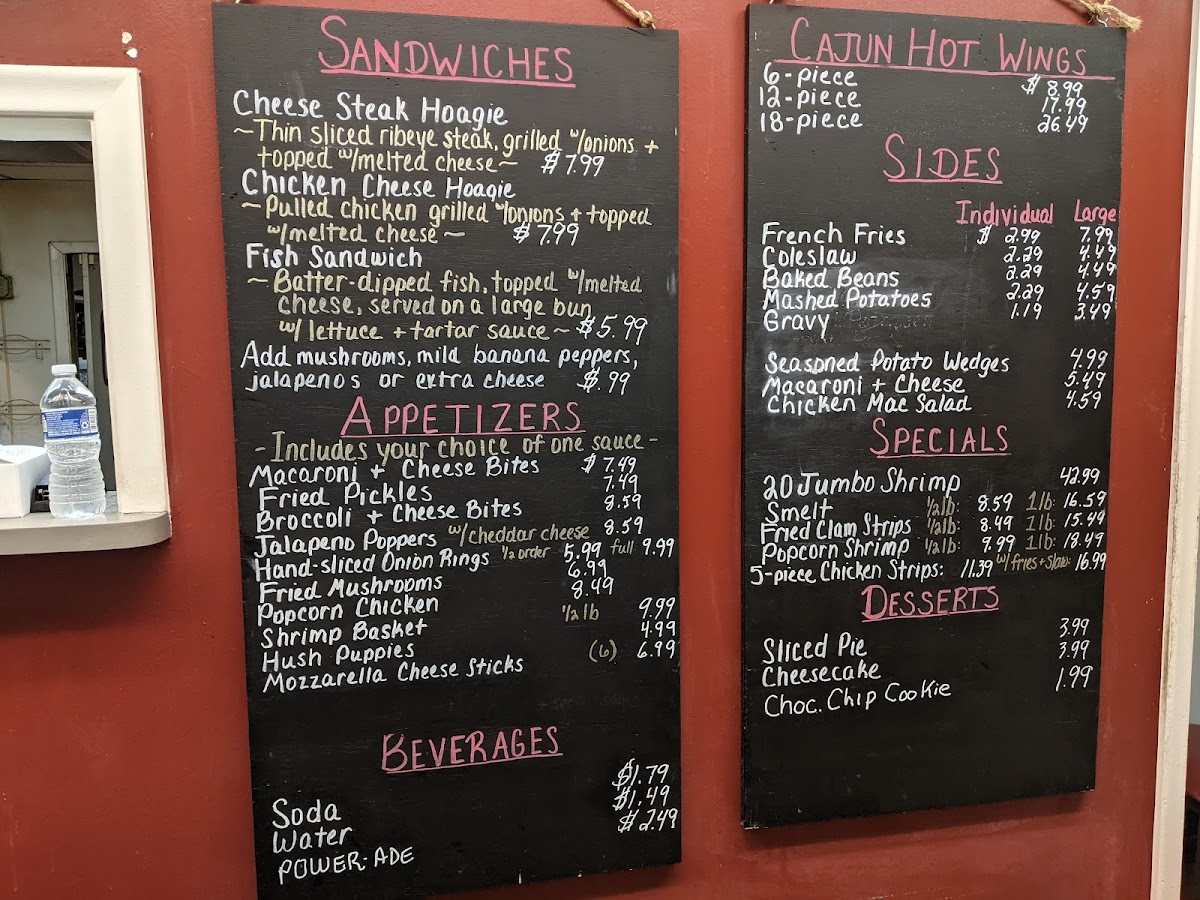 SANDWICHES
Cheese Steak Hoagie
~Thin sliced ribeye steak, grilled w/onions +
topped w/melted cheese~ $7.99
Chicken Cheese Hoagie
~Pulled chicken grilled w/onions + topped
w/melted cheese~ $7.99
Fish Sandwich
~Batter-dipped fish, topped w/melted
cheese, served on a large bun
w/ lettuce + tartar sauce~ $5.99
Add mushrooms, mild banana peppers,
jalapenos or extra cheese $.99
APPETIZERS
-Includes your choice of one sauce-
Macaroni + Cheese Bites $7.49
Fried Pickles 7.49
Broccoli + Cheese Bites 8.59
Jalapeno Poppers w/cheddar cheese 8.59
Hand-sliced Onion Rings 1/2 order 5.99 full 9.99
Fried Mushrooms 6.99
Popcorn Chicken 8.49
Shrimp Basket 1/2 lb 9.99
Hush Puppies 4.99
Mozzarella Cheese Sticks (6) 6.99
BEVERAGES
Soda $1.79
Water $1.49
POWER-ADE $2.49
CAJUN HOT WINGS
6-piece $8.99
12-piece 17.99
18-piece 26.49
SIDES
Individual Large
French Fries $2.99 7.99
Coleslaw 2.29 4.49
Baked Beans 2.29 4.49
Mashed Potatoes 2.29 4.59
Gravy 1.19 3.49
Seasoned Potato Wedges 4.99
Macaroni + Cheese 5.49
Chicken Mac Salad 4.59
SPECIALS
20 Jumbo Shrimp 42.99
Smelt 1/2lb: 8.59 1lb: 16.59
Fried Clam Strips 1/2lb: 8.49 1lb: 15.49
Popcorn Shrimp 1/2lb: 9.99 1lb: 18.49
5-piece Chicken Strips: 11.39 w/fries+slaw: 16.99
DESSERTS
Sliced Pie 3.99
Cheesecake 3.99
Choc. Chip Cookie 1.99